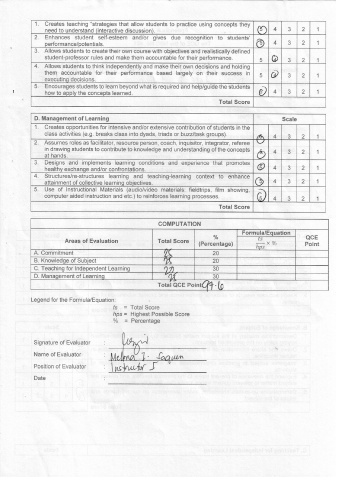 1. Creates teaching "strategies that allow students to practice using concepts they 5 4 3 2 1
need to understand (interactive discussion).
2. Enhances student self-esteem and/or gives due recognition to students' 5 4 3 2 1
performance/potentials.
3. Allows students to create their own course with objectives and realistically defined 5 4 3 2 1
student-professor rules and make them accountable for their performance.
4. Allows students to think independently and make their own decisions and holding 5 4 3 2 1
them accountable for their performance based largely on their success in
executing decisions.
5. Encourages students to learn beyond what is required and help/guide the students 5 4 3 2 1
how to apply the concepts learned.
Total Score
D. Management of Learning Scale
1. Creates opportunities for intensive and/or extensive contribution of students in the 5 4 3 2 1
class activities (e.g. breaks class into dyads, triads or buzz/task groups).
2. Assumes roles as facilitator, resource person, coach, inquisitor, integrator, referee 5 4 3 2 1
in drawing students to contribute to knowledge and understanding of the concepts
at hands.
3. Designs and implements learning conditions and experience that promotes 5 4 3 2 1
healthy exchange and/or confrontations.
4. Structures/re-structures learning and teaching-learning context to enhance 5 4 3 2 1
attainment of collective learning objectives.
5. Use of Instructional Materials (audio/video materials, fieldtrips, film showing, 5 4 3 2 1
computer aided instruction and etc.) to reinforces learning processes.
Total Score
COMPUTATION
Areas of Evaluation Total Score % (Percentage) Formula/Equation ts/hps x % QCE Point
A. Commitment 25 20
B. Knowledge of Subject 25 20
C. Teaching for Independent Learning 30
D. Management of Learning 25 30
Total QCE Point
Legend for the Formula/Equation:
ts = Total Score
hps = Highest Possible Score
% = Percentage
Signature of Evaluator :
Name of Evaluator :
Position of Evaluator : Instructor I
Date :